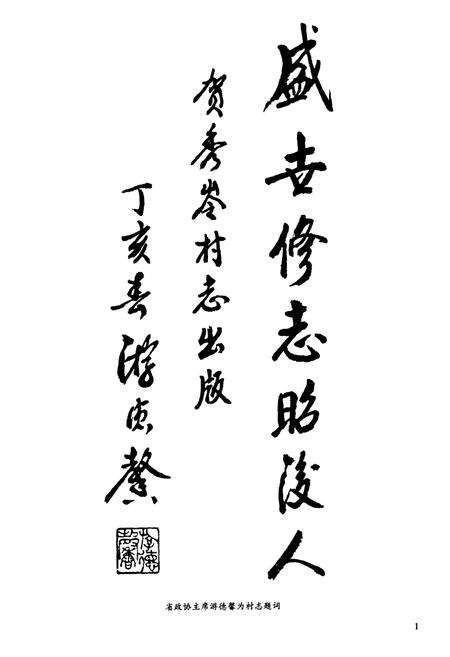 盛世修志昭後人
贺秀岺村志出版
丁亥春游德馨
游德馨
省政协主席游德馨为村志题词
1